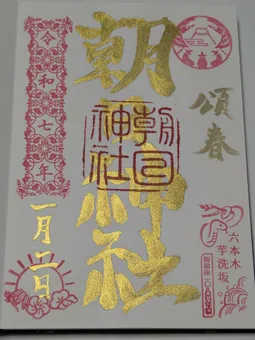 頌春
六本木
芋洗坂
朝日神社
朝日
神社
令和七年
一月二日